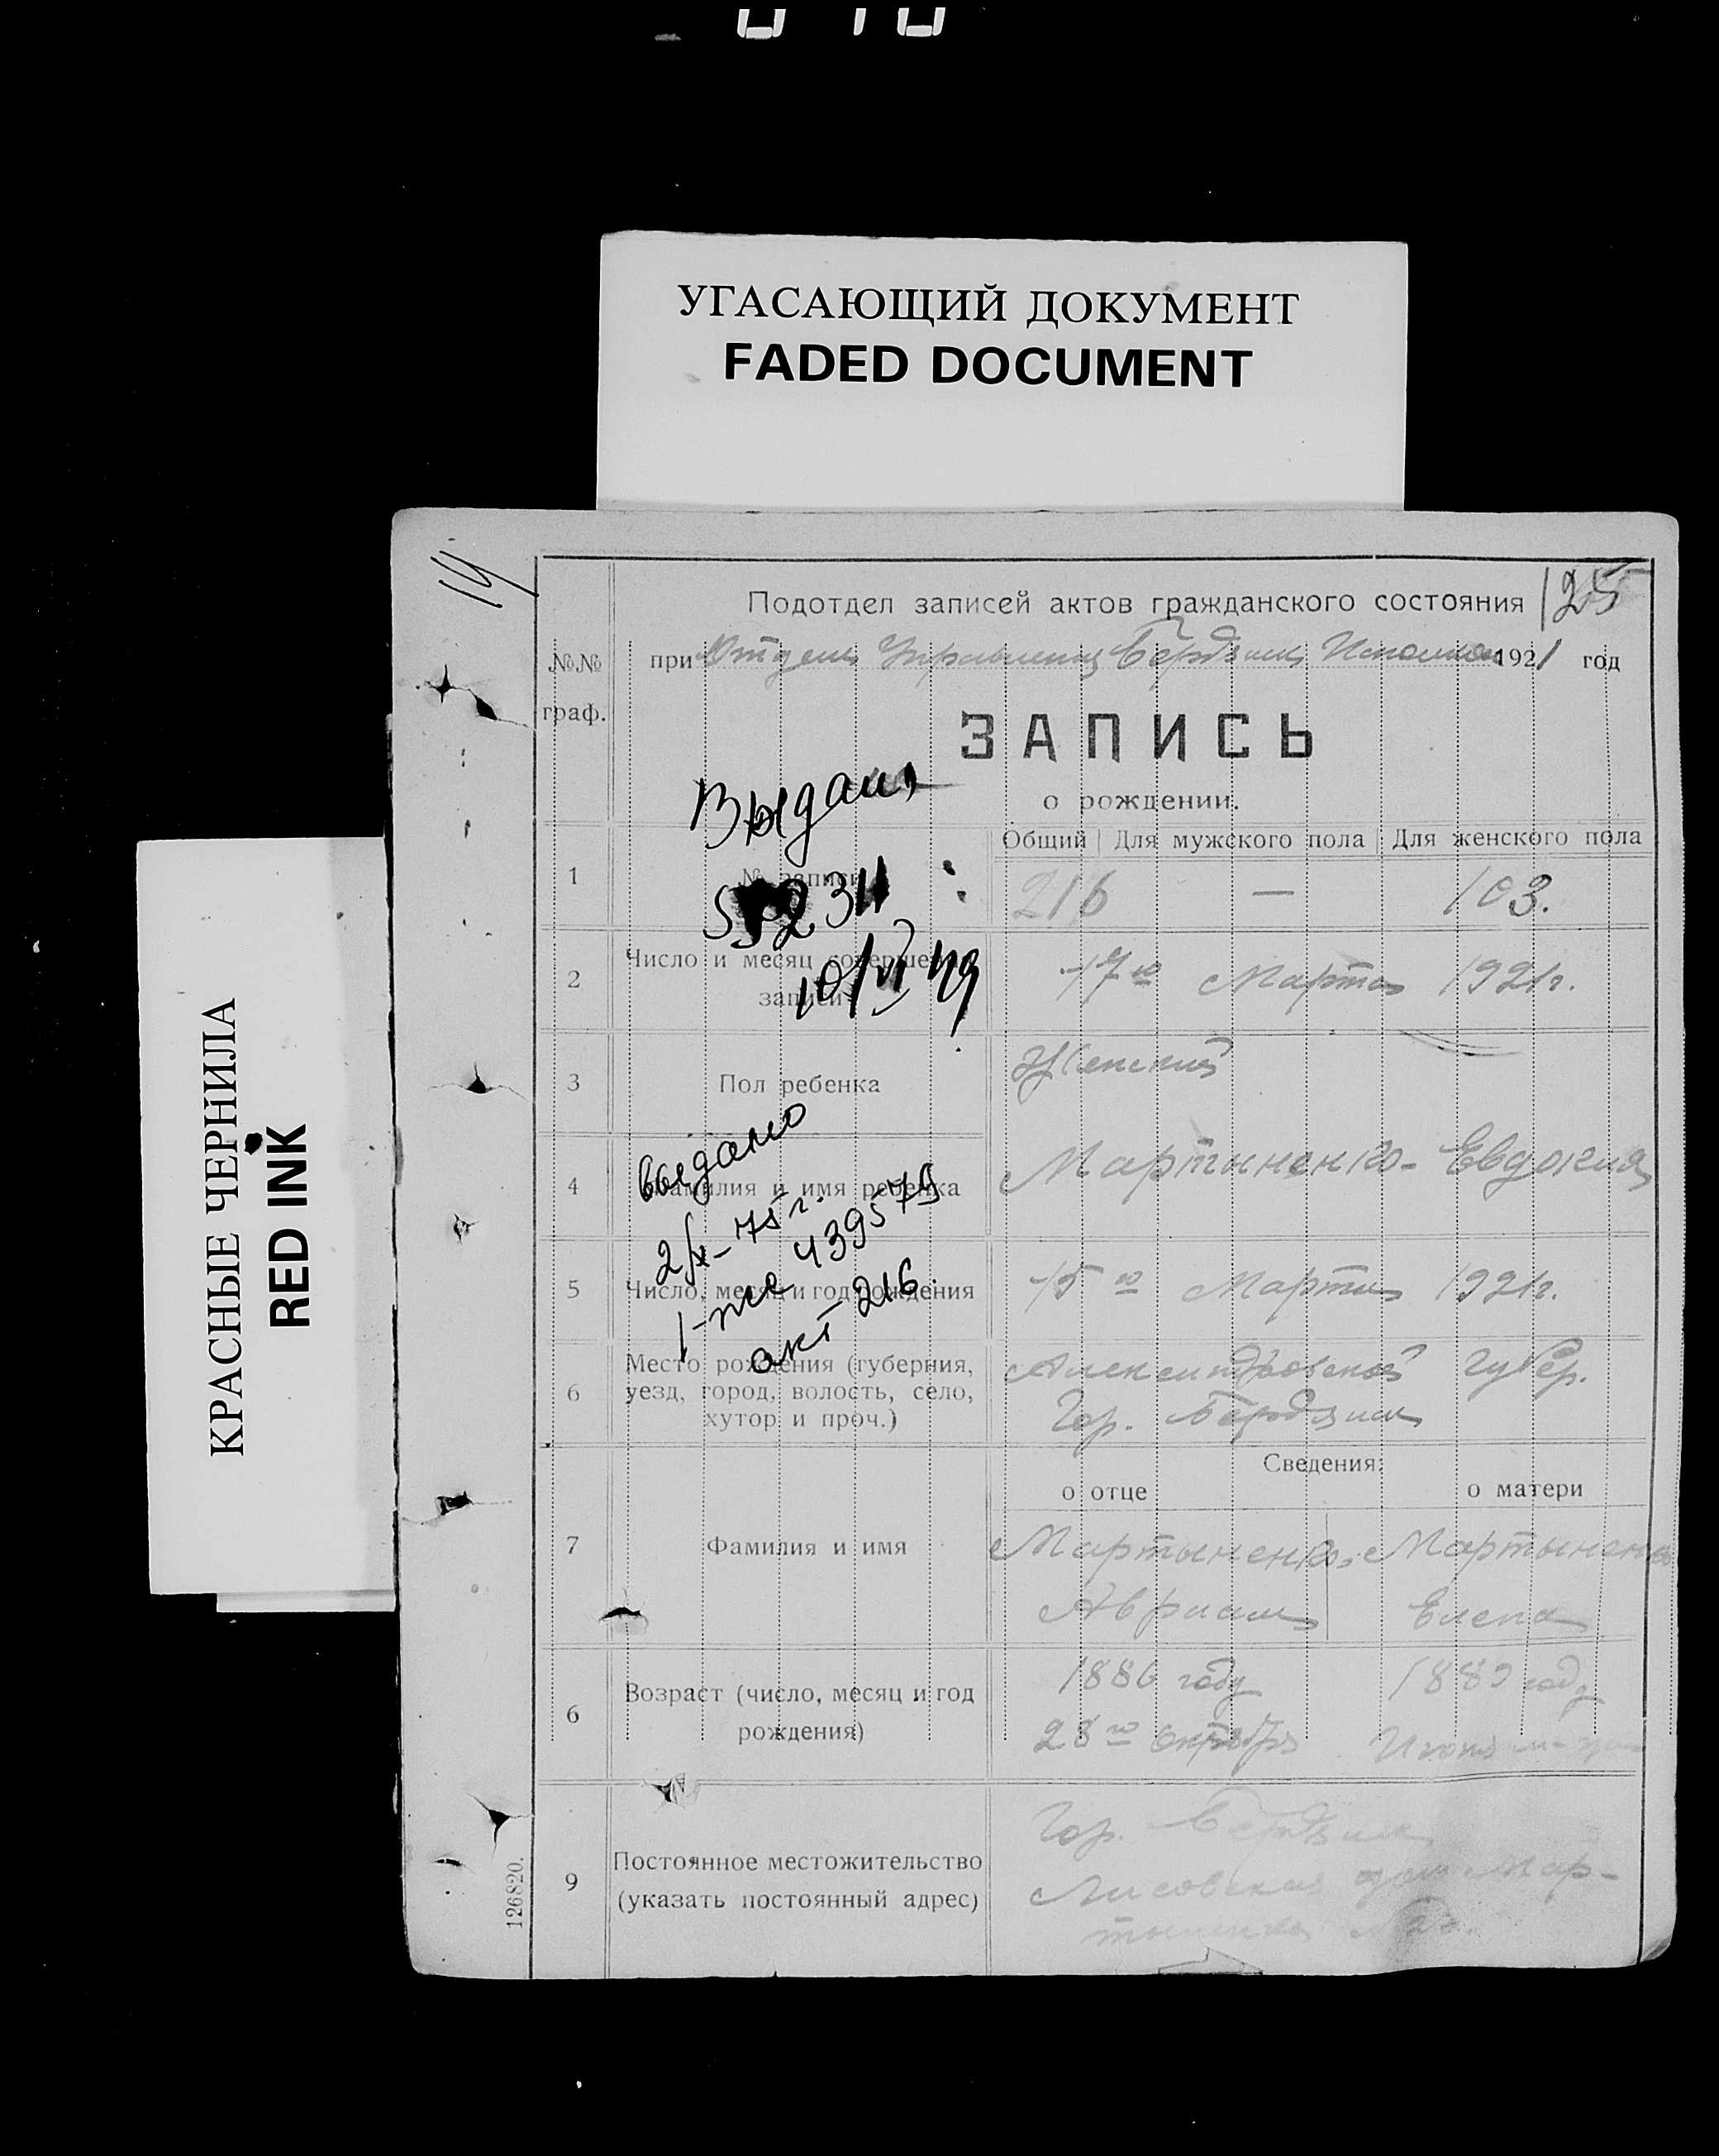 УГАСАЮЩИЙ ДОКУМЕНТ
FADED DOCUMENT
КРАСНЫЕ ЧЕРНИЛА
RED INK
14
125
Подотдел записей актов гражданского состояния
№.№ граф.
при Отделе Управления Бердянск. Исполкома 1921 год
ЗАПИСЬ
о рождении.
Выдан
Общий | Для мужского пола | Для женского пола
1 № записи 216 — 103.
2311
2 Число и месяц совершения записи 17го Марта 1921г.
10/VI 49
3 Пол ребенка Женский
выдано
4 Фамилия и имя ребенка Мартыненко Евдокия
75 г.
439579
5 Число, месяц и год рождения 15го Марта 1921г.
акт 216.
6 Место рождения (губерния, Александровской губер.
уезд, город, волость, село, Гор. Бердянск
хутор и проч.)
Сведения:
о отце о матери
7 Фамилия и имя Мартыненко Мартыненко
Авраам Елена
6 Возраст (число, месяц и год 1886 году году
рождения) 28го октября Июня
9 Постоянное местожительство Гор. Бердянск
(указать постоянный адрес) Лисовская дом Мар-
126820.